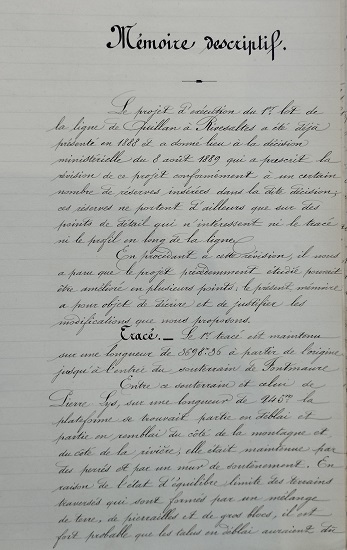 Mémoire descriptif.
Le projet d'exécution du 1er lot de
la ligne de Quillan à Rivesaltes a été déjà
présenté en 1888 et a donné lieu à la décision
ministérielle du 8 août 1889 qui a prescrit la
révision de ce projet conformément à un certain
nombre de réserves insérées dans la dite décision;
ces réserves ne portent d'ailleurs que sur des
points de détail qui n'intéressent ni le tracé
ni le profil en long de la ligne.
En procédant à cette révision, il nous
a paru que le projet précédemment étudié pouvait
être amélioré en plusieurs points: le présent mémoire
a pour objet de décrire et de justifier les
modifications que nous proposons.
Tracé. — Le 1er tracé est maintenu
sur une longueur de 3696m36 à partir de l'origine
jusqu'à l'entrée du souterrain de Fontmaure
Entre ce souterrain et celui de
Pierre Lys, sur une longueur de 246m la
plateforme se trouvait partie en déblai et
partie en remblai du côté de la montagne et
du côté de la rivière, elle était maintenue par
des perrés et par un mur de soutènement. En
raison de l'état d'équilibre limite des terrains
traversés qui sont formés par un mélange
de terre, de pierrailles et de gros blocs, il est
fort probable que les talus en déblai auraient dû